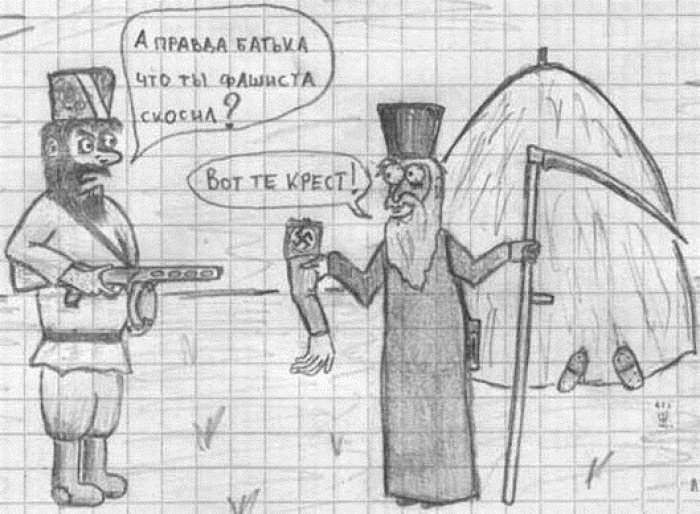 А ПРАВДА БАТЬКА
ЧТО ТЫ ФАШИСТА
СКОСИЛ?
ВОТ ТЕ КРЕСТ!